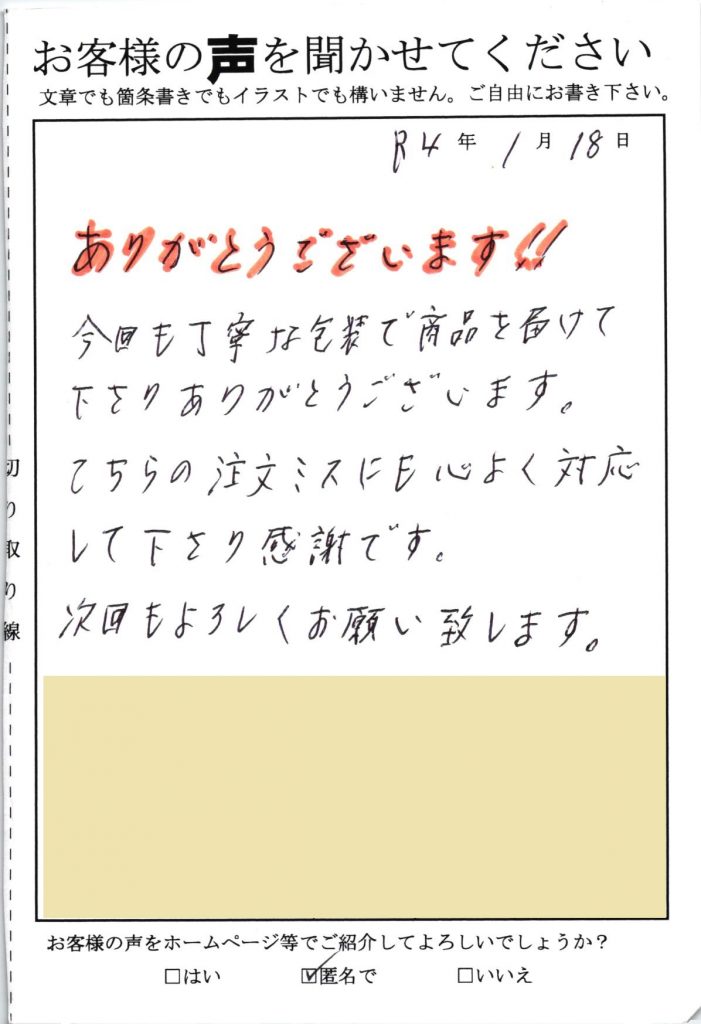 お客様の声を聞かせてください
文章でも箇条書きでもイラストでも構いません。ご自由にお書き下さい。
R4年1月18日
ありがとうございます!!
今回も丁寧な包装で商品を届けて
下さりありがとうございます。
こちらの注文ミスにも心よく対応
して下さり感謝です。
次回もよろしくお願い致します。
切り取り線
お客様の声をホームページ等でご紹介してよろしいでしょうか?
□はい ☑匿名で □いいえ